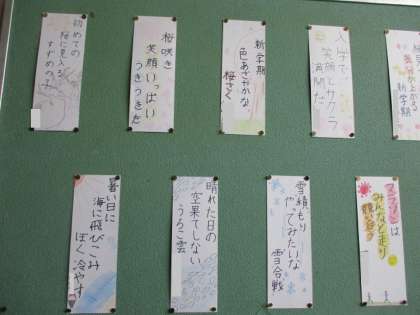 初めての
桜に見入る
すずめの子
桜咲き
笑顔いっぱい
うきうきだ
新学期
色あざやかな
桜さく
入学で
笑顔とサクラ
満開だ
新学期
暑い日に
海に飛びこみ
ぼく冷やす
晴れた日の
空果てしない
うろこ雲
雪積もり
やってみたいな
雪合戦
マラソンは
みんなと走り